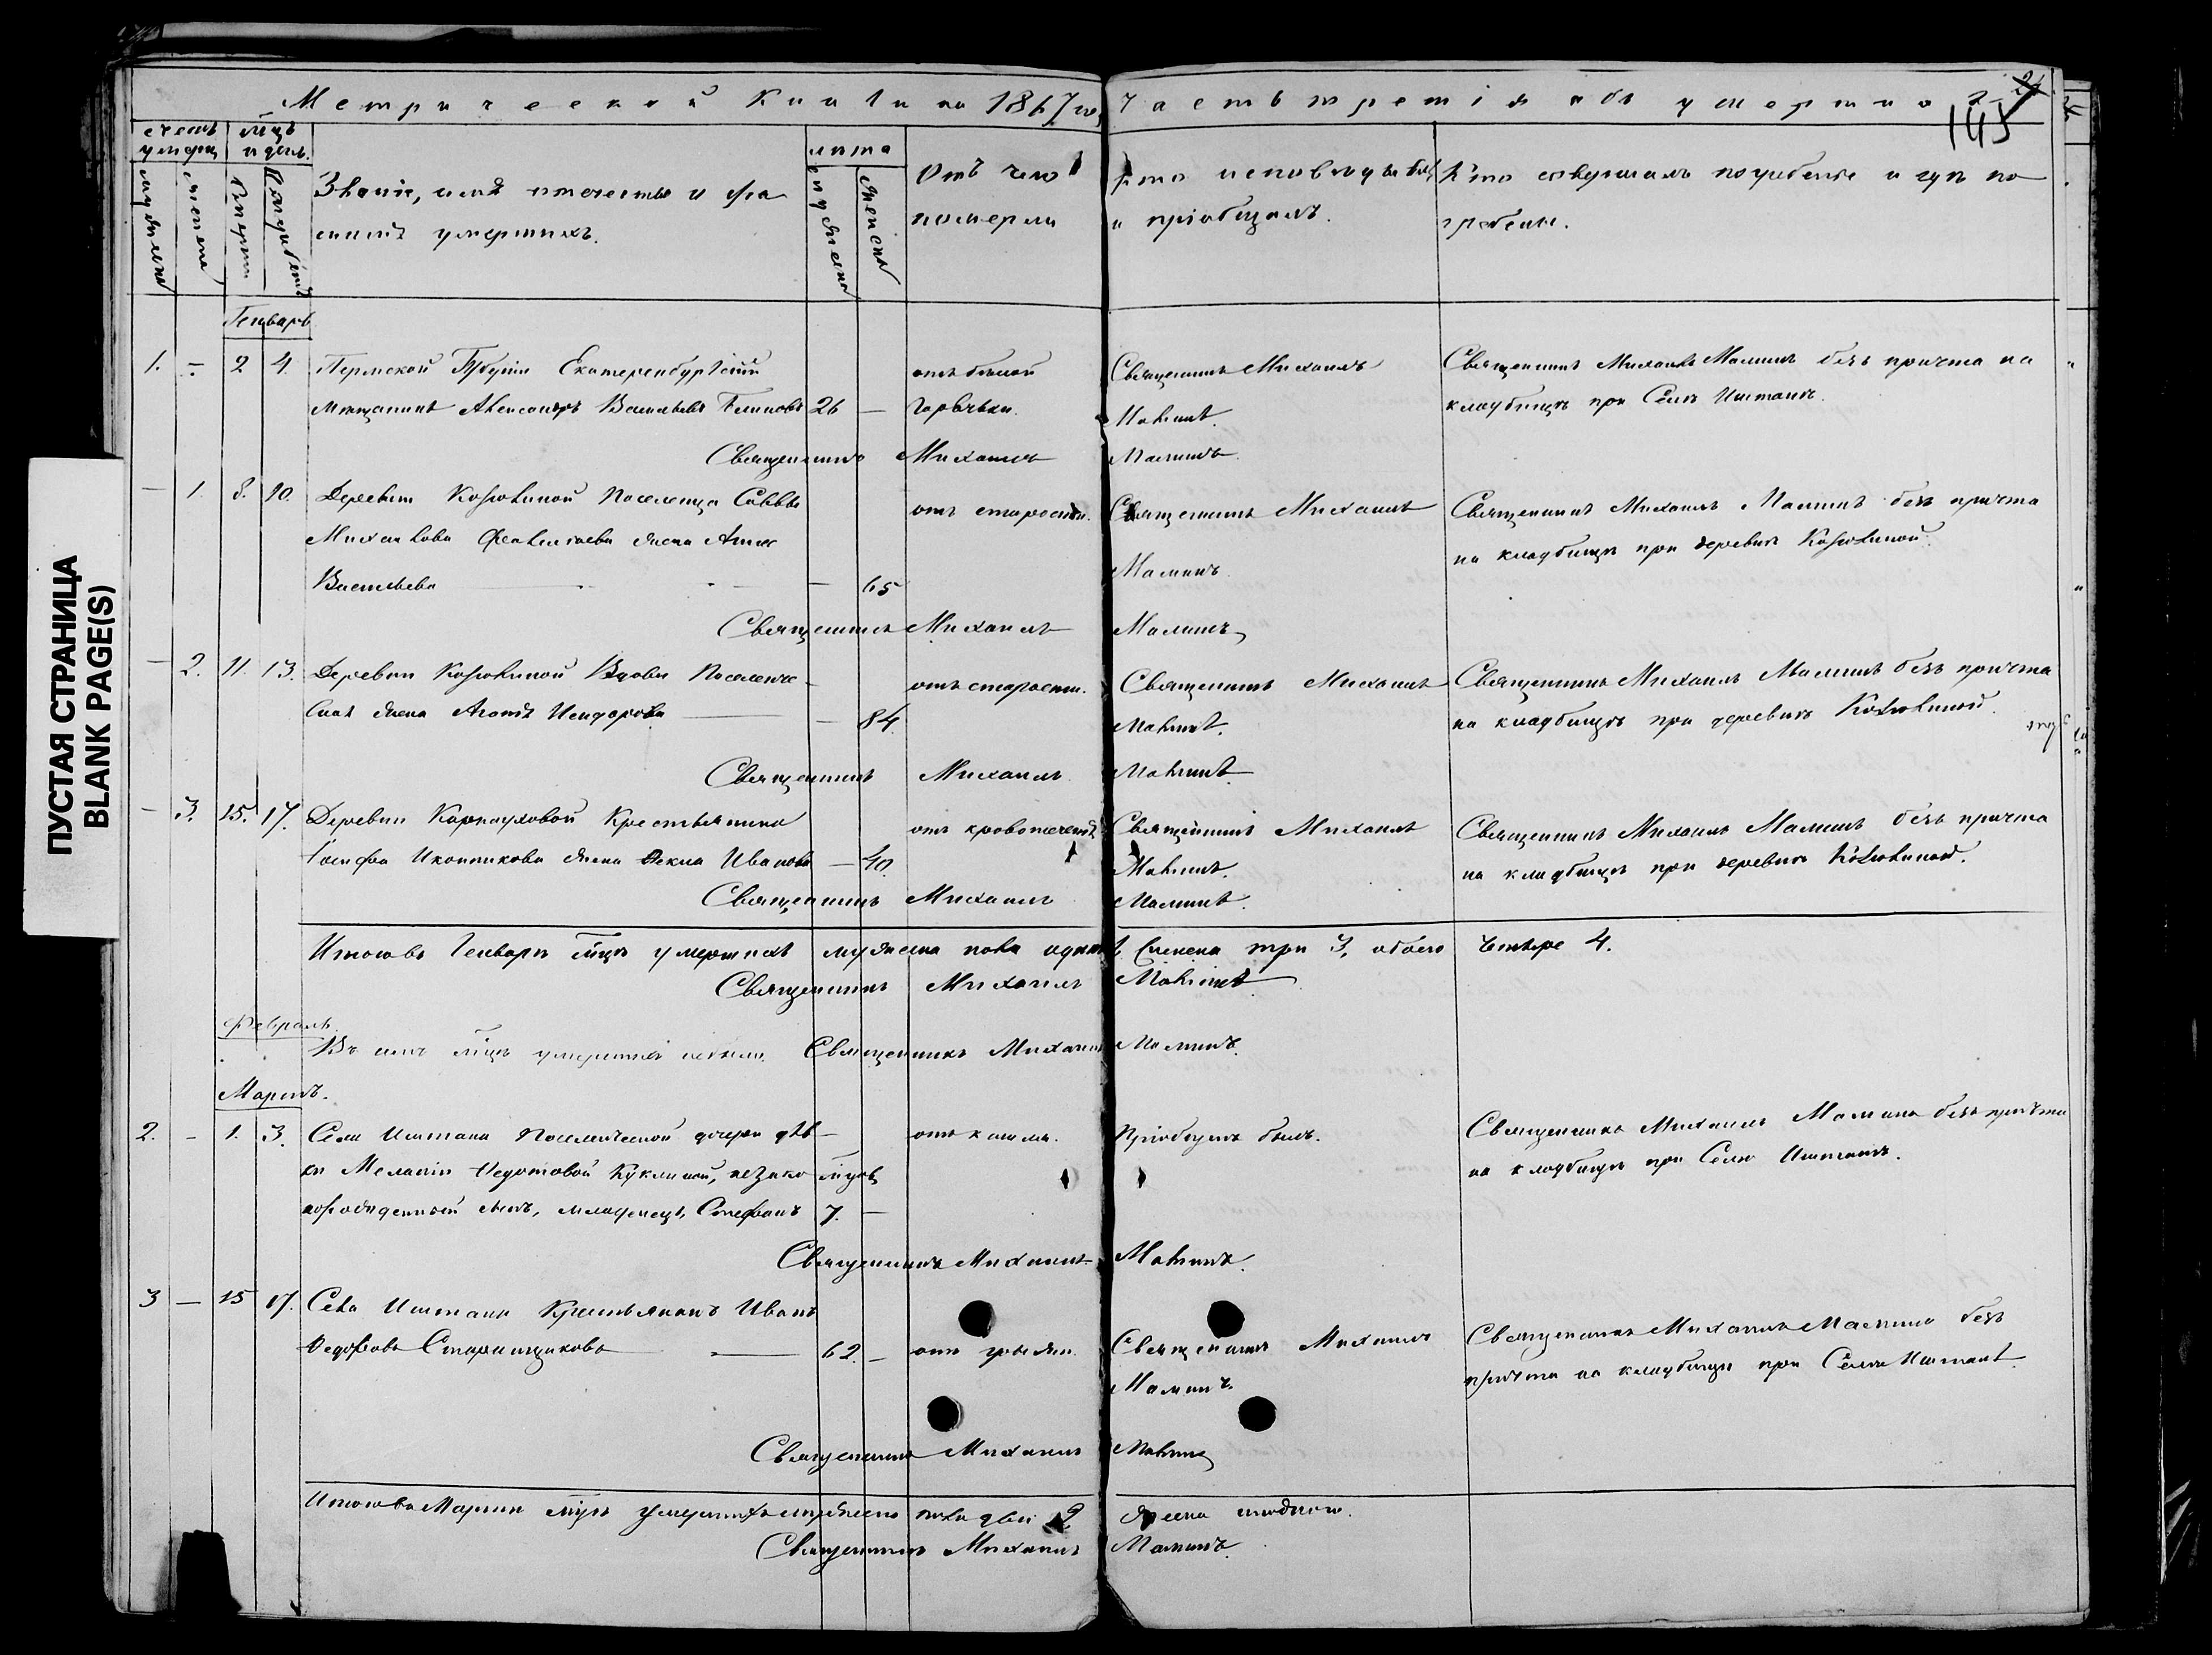 Метрической Книги на 1867 го,
Часть третія объ умерших
145
счетъ умерш
мцъ и день
лѣта
мужеска
женска
Смерти
Погребенія
Званіе, имя отечество и фа
милія умершихъ.
мужеска
женска
Отъ чего
померли
Кто исповѣдывалъ
и пріобщалъ.
Кто совершалъ погребеніе и гдѣ по
гребены.
Генварь
1. - 2 4. Пермской Губерніи Екатеренбургскій
мѣщанинъ Александръ Васильевъ 26 —
отъ бѣлой
горячьки.
Священникъ Михаилъ
Малинъ.
Священникъ Михаилъ Малинъ безъ причта на
кладбищѣ при Селѣ Иштанѣ.
Священникъ Михаилъ Малинъ.
— 1. 8. 10. Деревни Козюлиной Поселенца Саввы
Михайлова жена Анна
Васильева — 65
отъ старости.
Священникъ Михаилъ
Малинъ
Священникъ Михаилъ Малинъ безъ причта
на кладбищѣ при деревнѣ Козюлиной.
Священникъ Михаилъ Малинъ
— 2. 11. 13. Деревни Козюлиной Вдова Поселенче
ская жена Агафія Исидорова — 84.
отъ старости.
Священникъ Михаилъ
Малинъ.
Священникъ Михаилъ Малинъ безъ причта
на кладбищѣ при деревнѣ Козюлиной.
Священникъ Михаилъ Малинъ
— 3. 15. 17. Деревни Карнауховой Крестьянина
Іосифа Иконникова жена Ѳекла Иванова — 40.
отъ кровотеченія
Священникъ Михаилъ
Малинъ.
Священникъ Михаилъ Малинъ безъ причта
на кладбищѣ при деревнѣ Козюлиной.
Священникъ Михаилъ Малинъ.
Итого въ Генварѣ мцѣ умершихъ мужеска пола одинъ 1, женска три 3, обоего четыре 4.
Священникъ Михаилъ Малинъ
Февраль.
Въ семъ мцѣ умершихъ небыло. Священникъ Михаилъ Малинъ.
Мартъ.
2. - 1. 3. Села Иштана Поселенческой дочери дѣв —
ки Меланіи Ѳедотовой Куклиной, незако
норожденный сынъ, младенецъ, Стефанъ
мцовъ
7. —
отъ кашля.
Пріобщенъ былъ.
Священникъ Михаилъ Малинъ безъ причта
на кладбищѣ при Селѣ Иштанѣ.
Священникъ Михаилъ Малинъ.
3 — 15 17. Села Иштана Крестьянинъ Иванъ
Ѳедоровъ Старинщиковъ — 62. —
отъ грыжи.
Священникъ Михаилъ
Малинъ.
Священникъ Михаилъ Малинъ безъ
причта на кладбищѣ при Селѣ Иштанѣ
Священникъ Михаилъ Малинъ
Итого въ Мартѣ мцѣ умершихъ мужеска пола два 2 женска ниодного.
Священникъ Михаилъ Малинъ.
ПУСТАЯ СТРАНИЦА
BLANK PAGE(S)